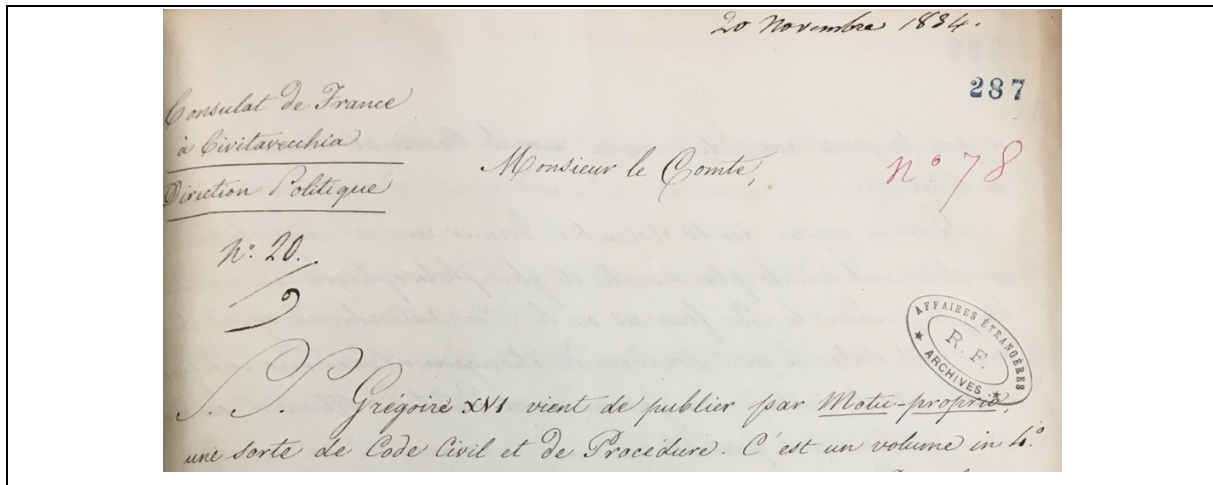 20 Novembre 1834.
287
Consulat de France
à Civitavecchia
Direction Politique
Monsieur le Comte,
N° 78
N° 20.
AFFAIRES ÉTRANGÈRES
R. F.
ARCHIVES
S. S. Grégoire XVI vient de publier par Motu-proprio,
une sorte de Code Civil et de Procédure. C'est un volume in 4°.